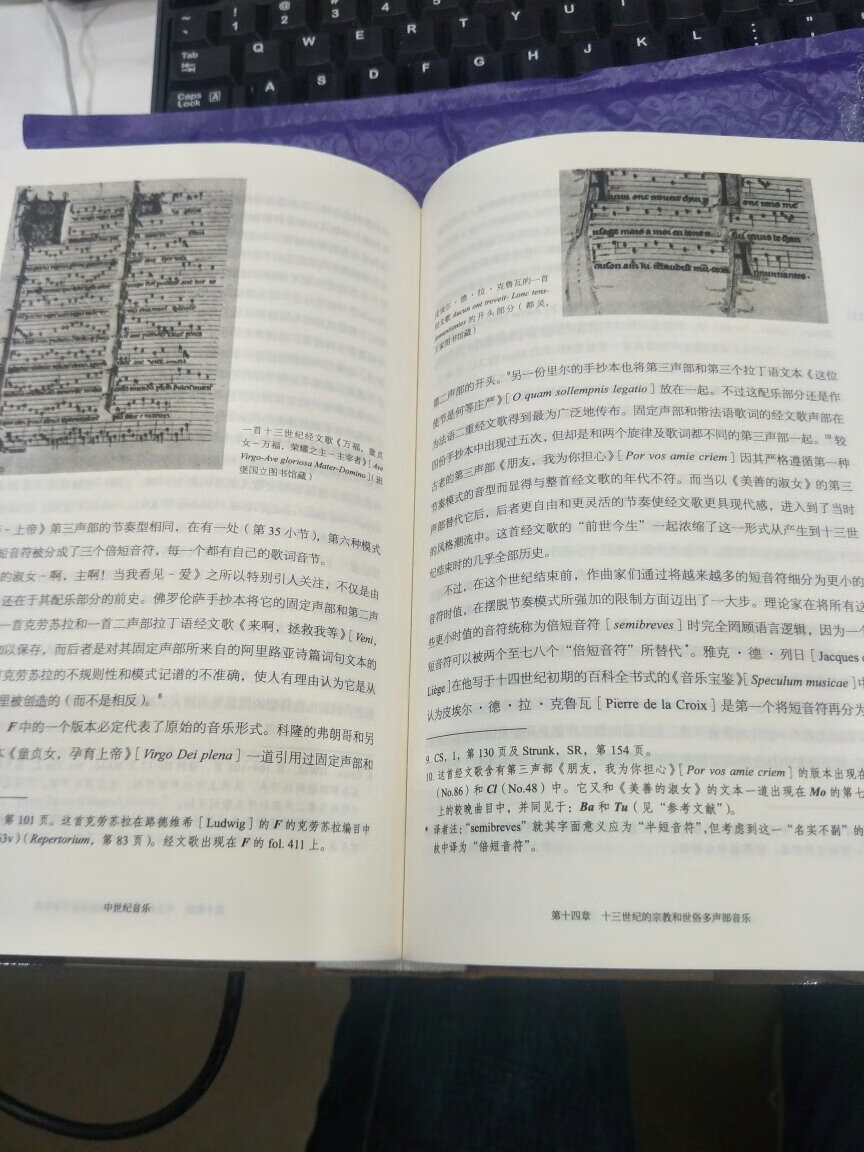 ! 1
@ 2
# 3
$ 4
% 5
Tab
Q W E R T Y U
Caps Lock A
A S D F G H J K L
一首十三世纪经文歌《万福，童贞
女-万福，荣耀之主-主宰者》[Ave
Virgo-Ave gloriosa Mater-Domino]（班
堡国立图书馆藏）
-上帝》第三声部的节奏型相同，在有一处（第 35 小节），第六种模式
短音符被分成了三个倍短音符，每一个都有自己的歌词音节。
的淑女-啊，主啊！当我看见-爱》之所以特别引人关注，不仅是由
还在于其配乐部分的前史。佛罗伦萨手抄本将它的固定声部和第二声
一首克劳苏拉和一首二声部拉丁语经文歌《来啊，拯救我等》[Veni,
加以保存，而后者是对其固定声部所来自的阿里路亚诗篇词句文本的
克劳苏拉的不规则性和模式记谱的不准确，使人有理由认为它是从
里被创造的（而不是相反）。8
F 中的一个版本必定代表了原始的音乐形式。科隆的弗朗哥和另
《童贞女，孕有上帝》[Virgo Dei plena] 一道引用过固定声部和
第 101 页。这首克劳苏拉在路德维希 [Ludwig] 的 F 的克劳苏拉编目中
63v)（Repertorium，第 83 页）。经文歌出现在 F 的 fol. 411 上。
中世纪音乐
皮埃尔·德·拉·克鲁瓦的一首
经文歌 Aucun ont troveit- Lonc tens-
Annuntiantes 的开头部分（都灵，
王家图书馆藏）
第二声部的开头。9另一份里尔的手抄本也将第三声部和第三个拉丁语文本《这位
使节是何等庄严》[O quam sollempnis legatio] 放在一起。不过这配乐部分还是作
为法语二重经文歌得到最为广泛地传布。固定声部和带法语歌词的经文歌声部在
四份手抄本中出现过五次，但却是和两个旋律及歌词都不同的第三声部一起。10 较
古老的第三声部《朋友，我为你担心》[Por vos amie criem] 因其严格遵循第一种
节奏模式的音型而显得与整首经文歌的年代不符。而当以《美善的淑女》的第三
声部替代它后，后者更自由和更灵活的节奏使经文歌更具现代感，进入到了当时
的风格潮流中。这首经文歌的“前世今生”一起浓缩了这一形式从产生到十三世
纪结束时的几乎全部历史。
不过，在这个世纪结束前，作曲家们通过将越来越多的短音符细分为更小的
音符时值，在摆脱节奏模式所强加的限制方面迈出了一大步。理论家在将所有这
些更小时值的音符统称为倍短音符 [semibreves] 时完全罔顾语言逻辑，因为一个
短音符可以被两个至七八个“倍短音符”所替代*。雅克·德·列日 [Jacques d
Liège] 在他写于十四世纪初期的百科全书式的《音乐宝鉴》[Speculum musicae] 中
认为皮埃尔·德·拉·克鲁瓦 [Pierre de la Croix] 是第一个将短音符再分为
9. CS，1，第 130 页及 Strunk，SR，第 154 页。
10. 这首经文歌含有第三声部《朋友，我为你担心》[Por vos amie criem] 的版本出现在
(No.86) 和 Cl (No.48) 中。它又和《美善的淑女》的文本一道出现在 Mo 的第七
上的较晚曲目中，并同见于：Ba 和 Tu（见“参考文献”）。
* 译者注：“semibreves”就其字面意义应为“半短音符”，但考虑到这一“名实不副”的
故中译为“倍短音符”。
第十四章 十三世纪的宗教和世俗多声部音乐